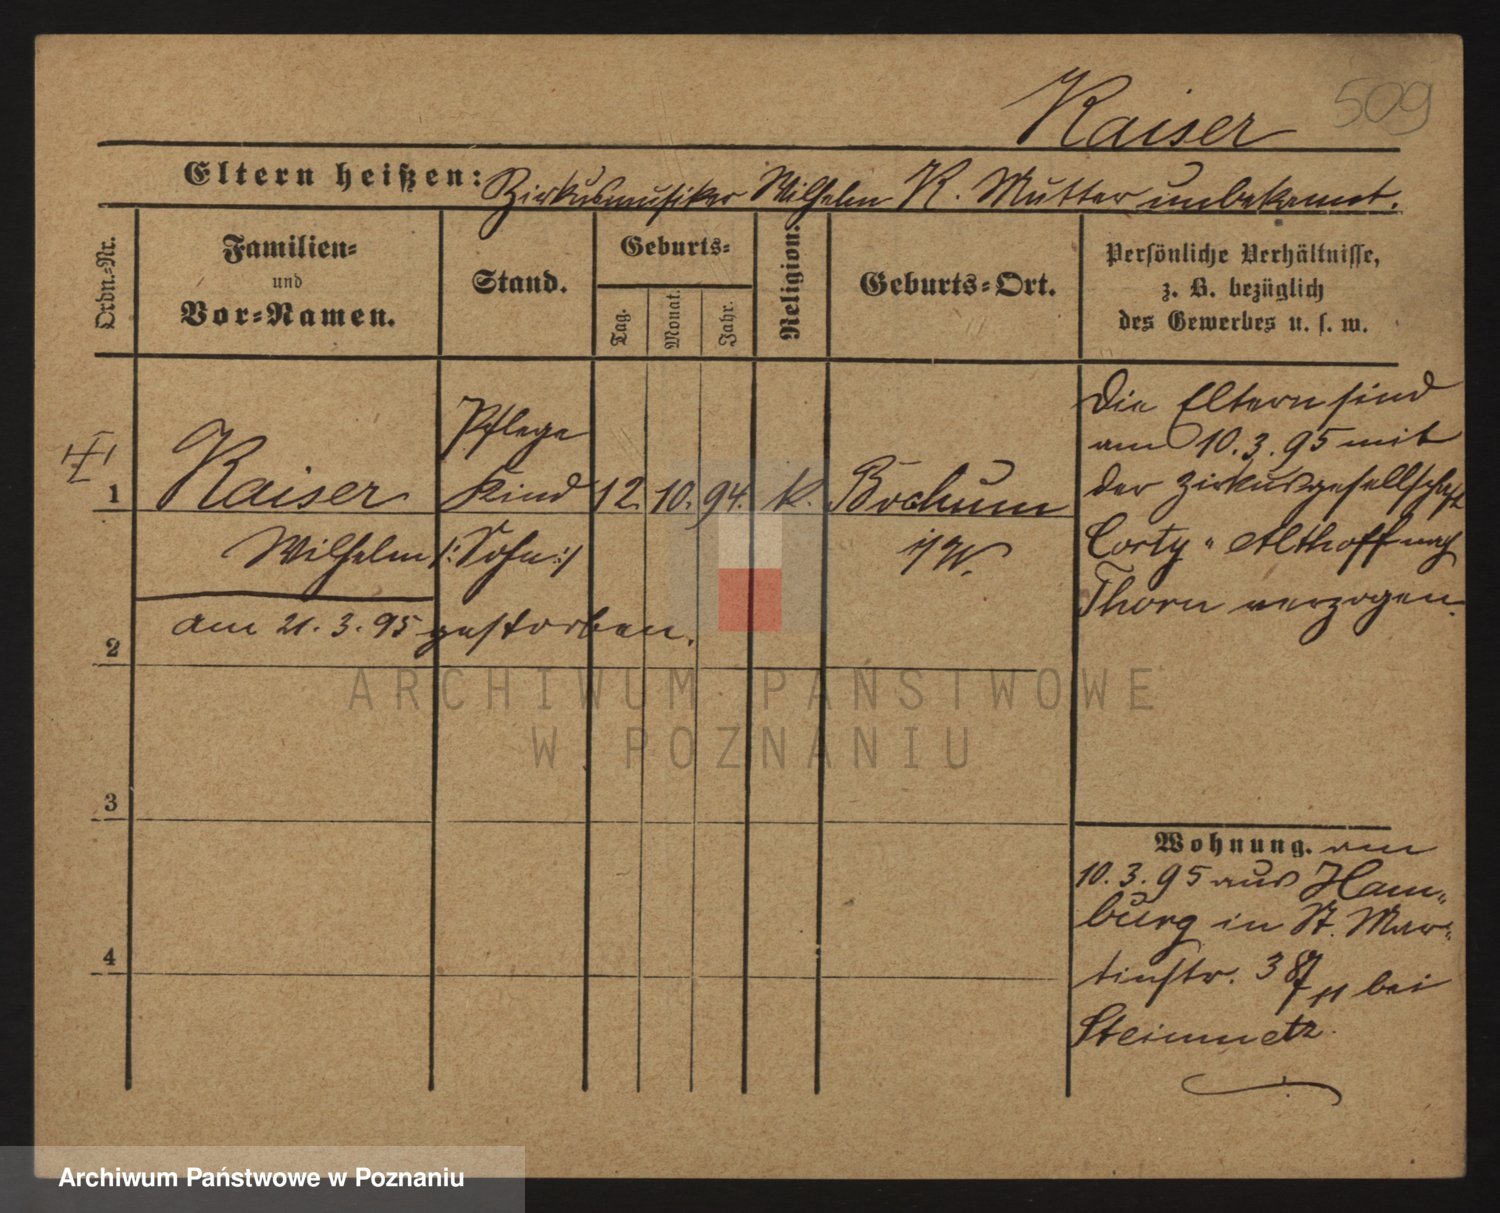 509
Kaiser
Eltern heißen: Zirkusmusiker Wilhelm K. Mutter unbekannt.
Ordn.-Nr.
Familien-
und
Vor-Namen.
Stand.
Geburts-
Tag.
Monat.
Jahr.
Religion.
Geburts-Ort.
Persönliche Verhältnisse,
z. B. bezüglich
des Gewerbes u. s. w.
Pflege
1 Kaiser Kind 12. 10. 94. k. Bochum
Wilhelm /: Sohn :/ i/W.
am 21. 3. 95 gestorben.
2
3
4
Die Eltern sind
am 10. 3. 95 mit
der Zirkusgesellschaft
Corty - Althoff nach
Thorn verzogen.
Wohnung. am
10. 3. 95 aus Ham-
burg in St. Mar-
tinstr. 38 II bei
Steinmetz.
ARCHIWUM PAŃSTWOWE
W POZNANIU
Archiwum Państwowe w Poznaniu